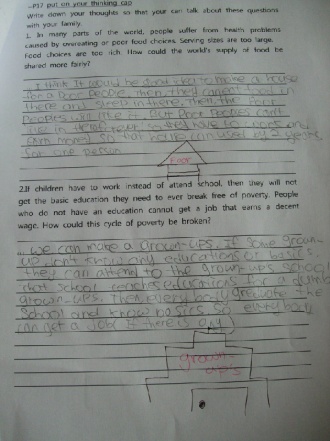 ...P17 put on your thinking cap
Write down your thoughts so that your can talk about these questions
with your family.
1. In many parts of the world, people suffer from health problems
caused by overeating or poor food choices. Serving sizes are too large.
Food choices are too rich. How could the world's supply of food be
shared more fairly?
I think It would be good idea to make a house
for a poor people, then, they cannot food in
there and sleep in there. Then the Poor
Peoples will like it. But Poor Peoples can't
live in there forever so they have to work and
earn money on that house can used by 2 years
for one person
Poor
2.If children have to work instead of attend school, then they will not
get the basic education they need to ever break free of poverty. People
who do not have an education cannot get a job that earns a decent
wage. How could this cycle of poverty be broken?
we can make a grown-ups. if some grown-
up don't know any educations or basics.
they can attend to the grown-ups school
that school teaches educations for a
grown-ups. Then, every body graduate the
School and know basics so every body
can get a Job if there is any
grown-
up's